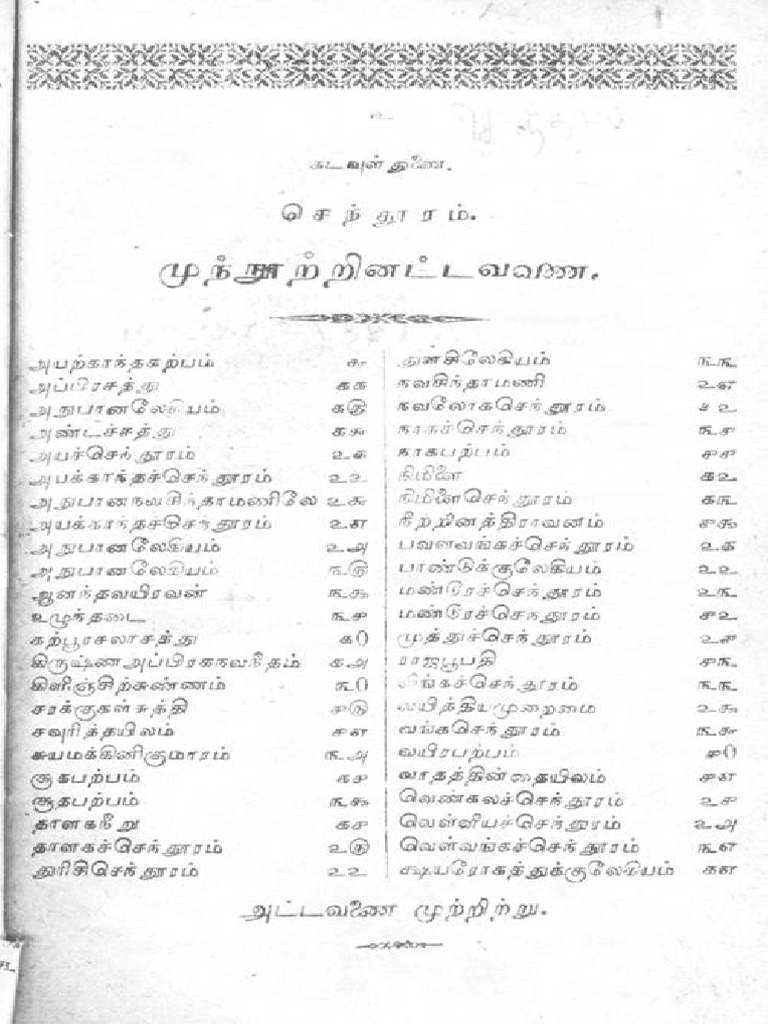 உ
கடவுள் துணை.
செந்தூரம்.
முந்நூற்றினட்டவணை.
அயற்காந்தகற்பம் ௬
அப்பிரசத்து ௧௧
அநுபானலேகியம் ௧௫
அண்டச்சத்து ௧௬
அயச்செந்தூரம் ௨௧
அபக்காந்தச்செந்தூரம் ௨௨
அநுபானநவசிந்தாமணிலே ௨௬
அயக்காந்தச்செந்தூரம் ௨௭
அநுபானலேகியம் ௨௮
அநுபானலேகியம் ௩௫
ஆனந்தவயிரவன் ௩௬
உழுந்தடை ௩௪
கற்பூரசலாசத்து ௧0
கிருஷ்ணஅப்பிரகநவநீதம் ௧௮
கிளிஞ்சிற்சுண்ணம் ௩0
சரக்குகள்சுத்தி ௪௫
சவுரித்தயிலம் ௪௭
சுயமக்கினிகுமாரம் ௩௮
சூதபற்பம் ௧௪
சூதபற்பம் ௩௬
தாளகநீறு ௧௪
தாளகச்செந்தூரம் ௨௫
துரிசிசெந்தூரம் ௨௨
துளசிலேகியம் ௩௩
நவசிந்தாமணி ௨௭
நவலோகசெந்தூரம் ௨
நாகச்செந்தூரம் ௩௪
நாகபற்பம் ௪௪
நிமிளை ௧௨
நிமிளைசெந்தூரம் ௧௩
நீற்றினத்திராவனம் ௪௬
பவளவங்கச்செந்தூரம் ௨௧
பாண்டுக்குலேகியம் ௨௨
மண்டூரச்செந்தூரம் ௨௩
மண்டூரச்செந்தூரம் ௪௨
முத்துச்செந்தூரம் ௨௪
ராஜபூபதி ௪௩
லிங்கச்செந்தூரம் ௩௩
வயித்தியமுறைமை ௨௬
வங்கசெந்தூரம் ௩௬
வயிரபற்பம் ௪0
வாதத்தின்தையிலம் ௪௭
வெண்கலச்செந்தூரம் ௨௪
வெள்ளியச்செந்தூரம் ௨௮
வெள்வங்கச்செந்தூரம் ௩௭
க்ஷயரோகத்துக்குலேகியம் ௧௭
அட்டவணை முற்றிற்று.